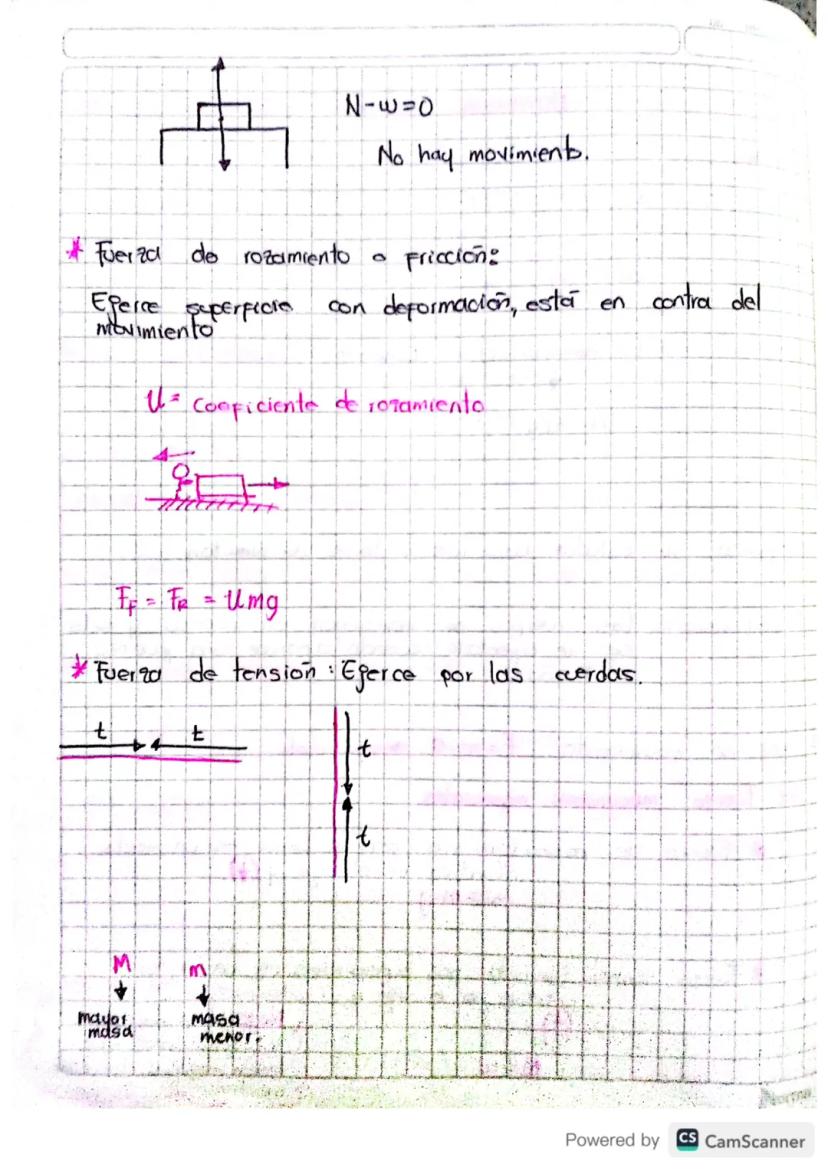 N-w=0
No hay movimiento.
* Fuerza de rozamiento o Fricción:
Ejerce superficie con deformación, está en contra del
movimiento
U= coeficiente de rozamiento
FF = FR = Umg
* Fuerza de tensión : Ejerce por las cuerdas.
t t
t
t
M m
mayor masa
masa menor.
Powered by CS CamScanner